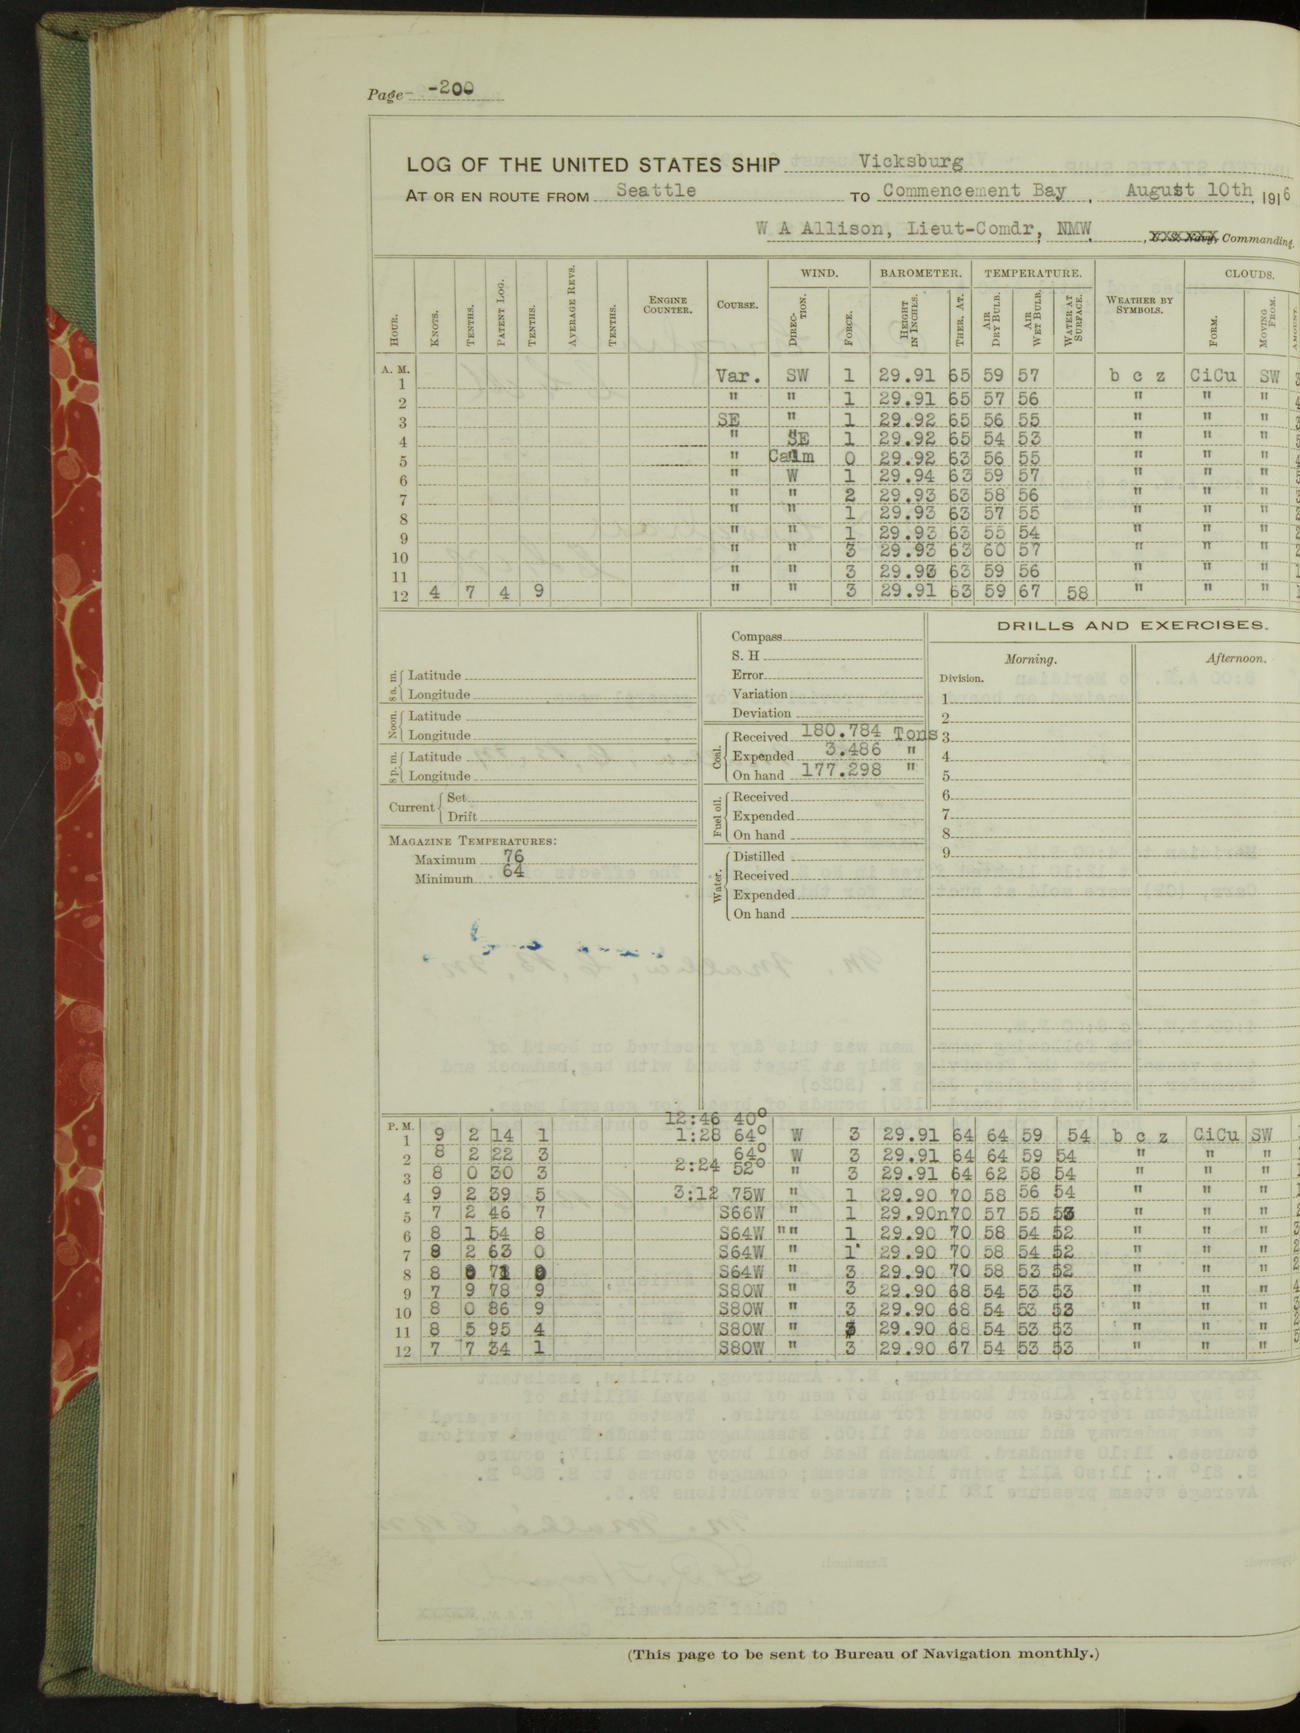 Page -200
LOG OF THE UNITED STATES SHIP Vicksburg
AT OR EN ROUTE FROM Seattle TO Commencement Bay, August 10th, 1916
W A Allison, Lieut-Comdr, NMW, Commanding.
HOUR. KNOTS. TENTHS. PATENT LOG. TENTHS. AVERAGE REVS. TENTHS. ENGINE COUNTER. COURSE. WIND. DIRECTION. FORCE. BAROMETER. HEIGHT IN INCHES. THER. AT. TEMPERATURE. AIR DRY BULB. AIR WET BULB. WATER AT SURFACE. WEATHER BY SYMBOLS. CLOUDS. FORM. MOVING FROM. AMOUNT.
A. M.
1 Var. SW 1 29.91 65 59 57 b c z CiCu SW
2 " " 1 29.91 65 57 56 " " "
3 SE " 1 29.92 65 56 55 " " "
4 " SE 1 29.92 65 54 53 " " "
5 " Calm 0 29.92 63 56 55 " " "
6 " W 1 29.94 63 59 57 " " "
7 " " 2 29.93 63 58 56 " " "
8 " " 1 29.93 63 57 55 " " "
9 " " 1 29.93 63 55 54 " " "
10 " " 3 29.93 63 60 57 " " "
11 " " 3 29.93 63 59 56 " " "
12 4 7 4 9 " " 3 29.91 63 59 67 58 " " "
8 a. m. Latitude
Longitude
Noon. Latitude
Longitude
8 p. m. Latitude
Longitude
Current Set
Drift
MAGAZINE TEMPERATURES:
Maximum 76
Minimum 64
Compass
S. H
Error
Variation
Deviation
Coal. Received 180.784 Tons
Expended 3.486 "
On hand 177.298 "
Fuel oil. Received
Expended
On hand
Water. Distilled
Received
Expended
On hand
DRILLS AND EXERCISES.
Morning. Afternoon.
Division.
1
2
3
4
5
6
7
8
9
12:46 40°
P. M.
1 9 2 14 1 1:28 64° W 3 29.91 64 64 59 54 b c z CiCu SW
2 8 2 22 3 64° W 3 29.91 64 64 59 54 " " "
3 8 0 30 3 2:24 52° " 3 29.91 64 62 58 54 " " "
4 9 2 39 5 3:12 75W " 1 29.90 70 58 56 54 " " "
5 7 2 46 7 S66W " 1 29.90n70 57 55 53 " " "
6 8 1 54 8 S64W "" 1 29.90 70 58 54 52 " " "
7 8 2 63 0 S64W " 1 29.90 70 58 54 52 " " "
8 8 0 71 0 S64W " 3 29.90 70 58 53 52 " " "
9 7 9 78 9 S80W " 3 29.90 68 54 53 53 " " "
10 8 0 86 9 S80W " 3 29.90 68 54 53 53 " " "
11 8 5 95 4 S80W " 3 29.90 68 54 53 53 " " "
12 7 7 34 1 S80W " 3 29.90 67 54 53 53 " " "
(This page to be sent to Bureau of Navigation monthly.)